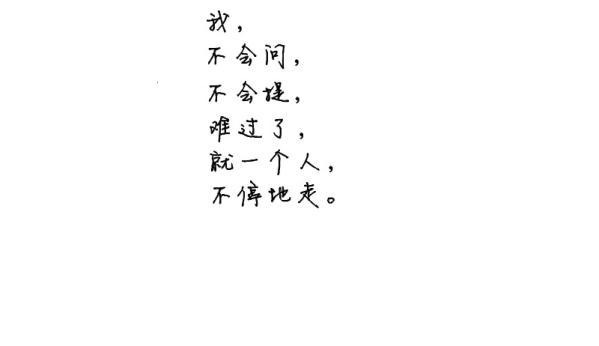 我，
不会问，
不会提，
难过了，
就一个人，
不停地走。